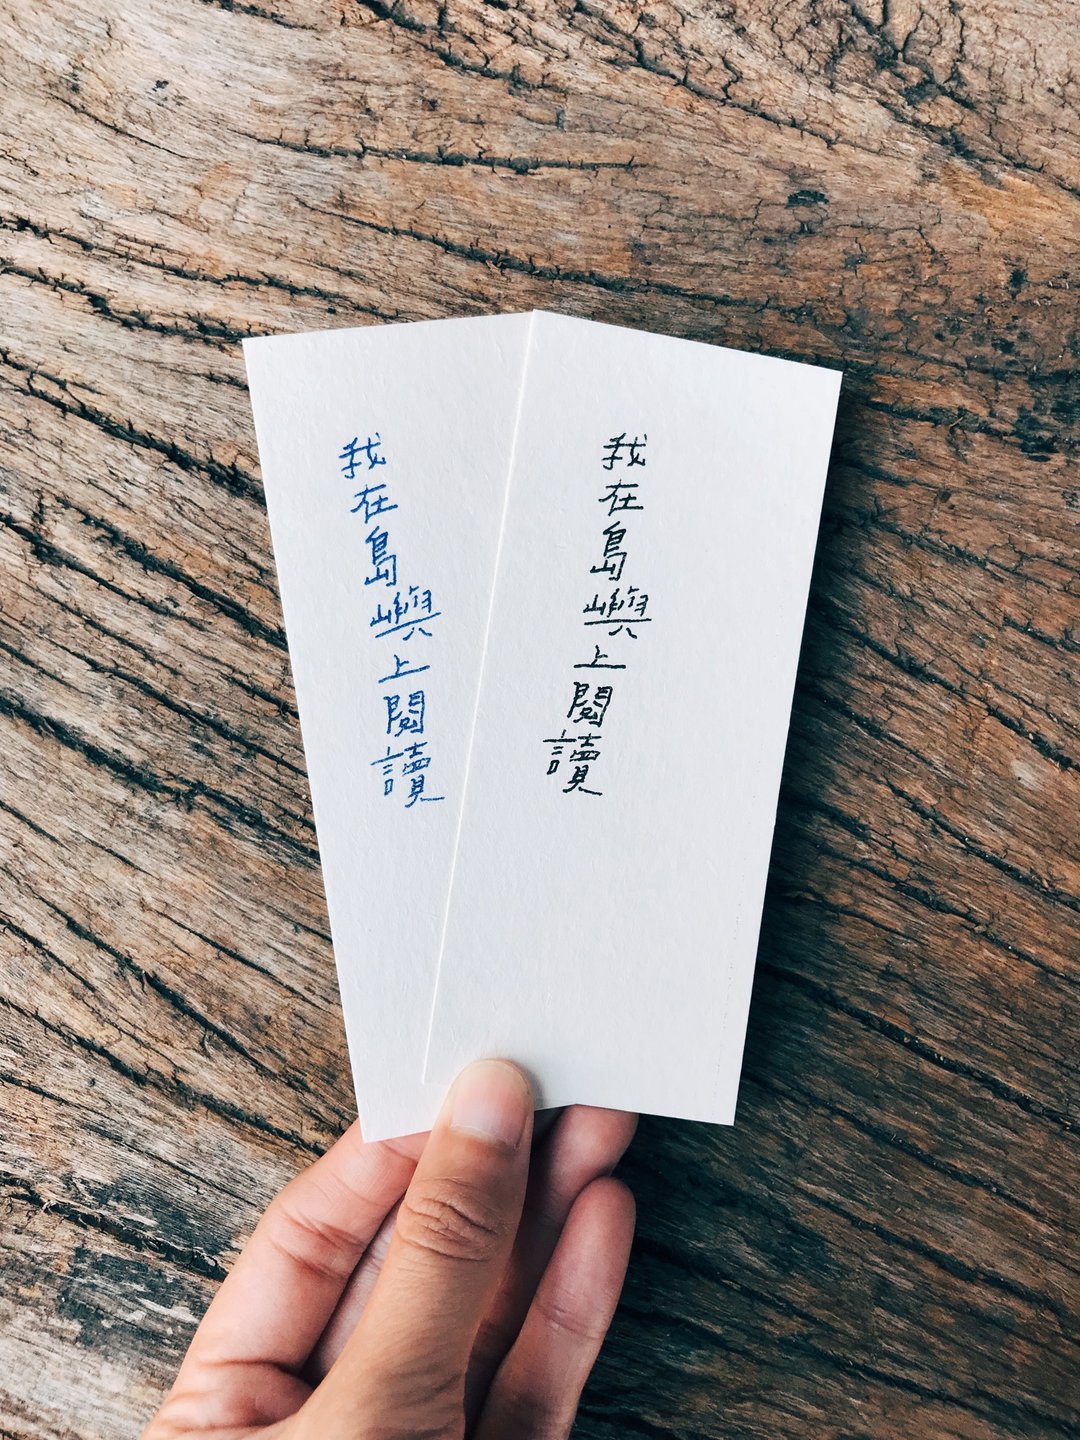 我在島嶼上閱讀
我在島嶼上閱讀